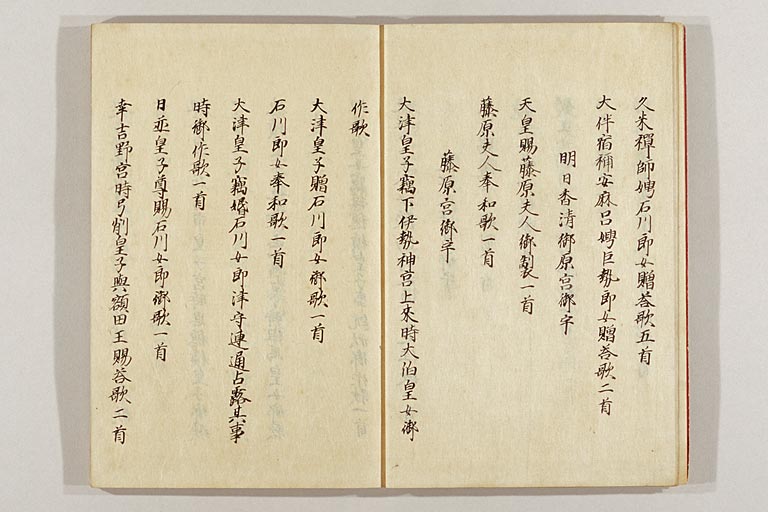 久米禅師娉石川郎女贈荅歌五首
大伴宿祢安麻呂娉巨勢郎女贈荅歌二首
明日香清御原宮御宇
天皇賜藤原夫人御製一首
藤原夫人奉和歌一首
藤原宮御宇
大津皇子竊下伊勢神宮上来時大伯皇女御
作歌
大津皇子贈石川郎女御歌一首
石川郎女奉和歌一首
大津皇子竊婚石川女郎津守連通占露其事
時御作歌一首
日並皇子尊賜石川女郎御歌一首
幸吉野宮時弓削皇子與額田王賜荅歌二首